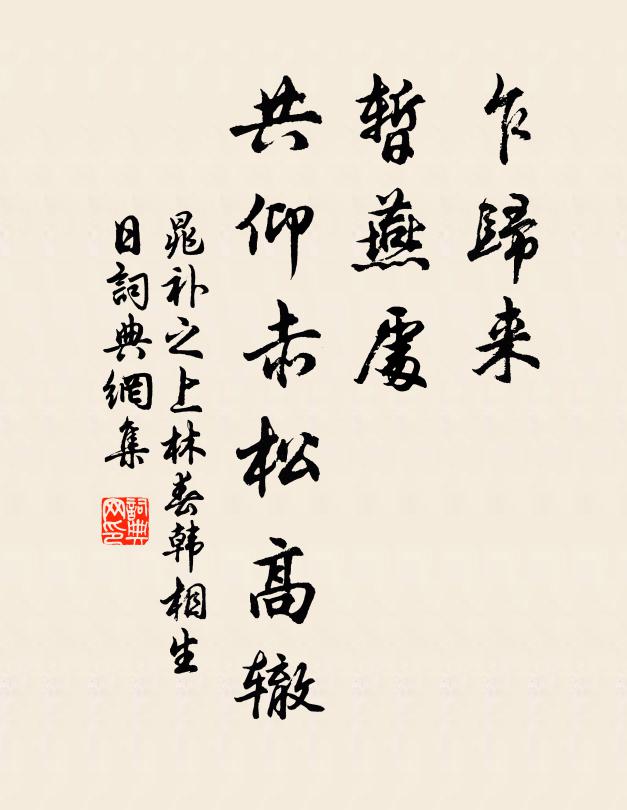 乍歸来
暫燕處
共仰赤松高辙
晁补之上林春韩相生
日詞典網集
詞典网印